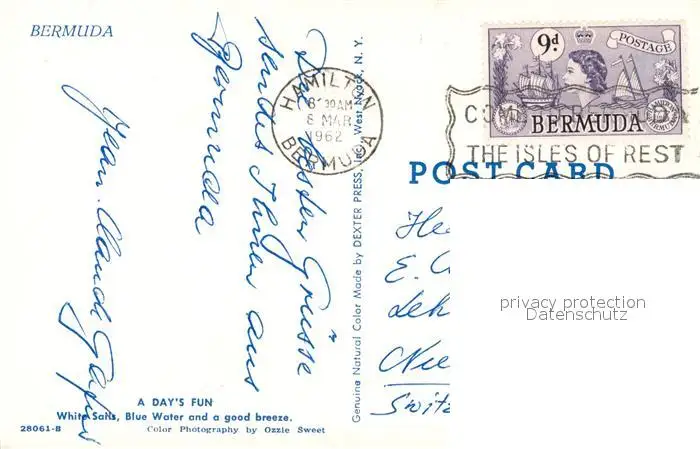 BERMUDA
Die besten Grüsse
sendet Ihnen aus
Bermuda
Jean-Claude
A DAY'S FUN
White Sails, Blue Water and a good breeze.
28061-B
Color Photography by Ozzie Sweet
Genuine Natural Color Made by DEXTER PRESS, INC. West Nyack, N. Y.
HAMILTON
8 30 AM
8 MAR
1962
BERMUDA
9d
POSTAGE
BERMUDA
THE ISLES OF REST
POST CARD
He
E.
Leh
Nie
Switz
privacy protection
Datenschutz